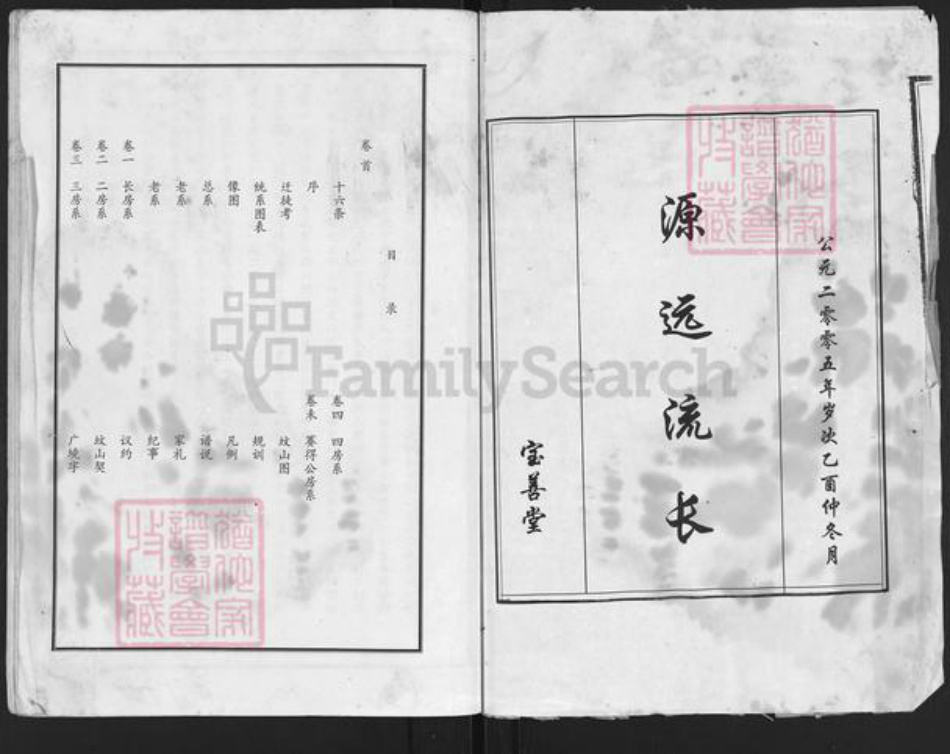 公元二零零五年岁次乙酉仲冬月
源远流长
宝善堂
目录
卷首
十六条
序
迁徒考
统系图表
像图
总系
老系
老系
卷一 长房系
卷二 二房系
卷三 三房系
卷四 四房系
卷末 寡得公房系
坟山图
规训
凡例
谱说
家礼
纪事
议约
坟山契
FamilySearch